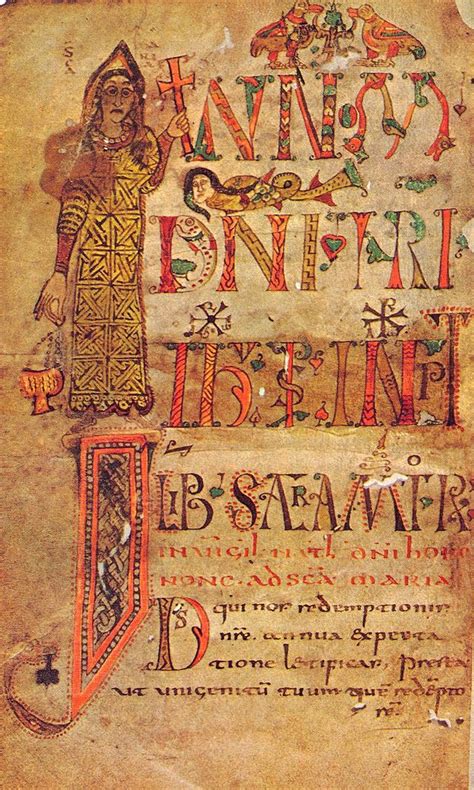 INNOM
DNI NRI
LIB SACRAM
IN UIGIL NATL DNI HORA
NONE. AD SCA MARIA
DS qui nos redemptionis
nrē. annua expecta
tione letificas, Presta
ut unigenitū tuum quē redēpto
rē.